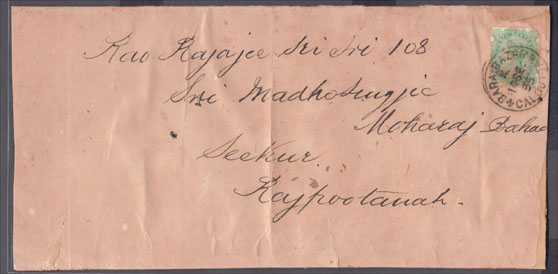 Rao Rajajee Sri Sri 108
Sri Madhosingjie
Moharaj Baha
Seekur
Rajpootanah.
BARA BAZAR
CALCUTTA